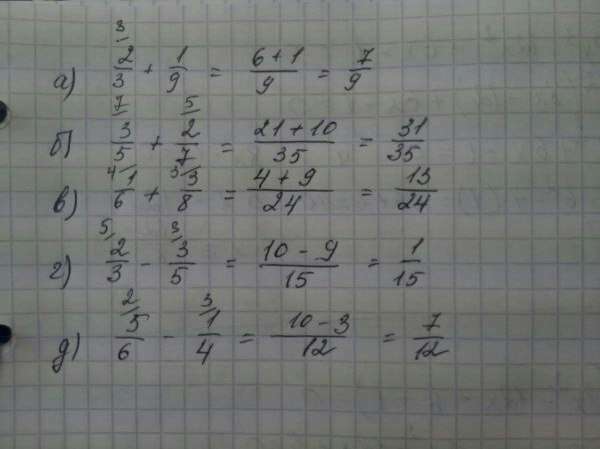 а) 3/ 2/3 + 1/9 = (6+1)/9 = 7/9
б) 7/ 3/5 + 5/ 2/7 = (21+10)/35 = 31/35
в) 4/ 1/6 + 3/ 3/8 = (4+9)/24 = 13/24
г) 5/ 2/3 - 3/ 3/5 = (10-9)/15 = 1/15
д) 2/ 5/6 - 3/ 1/4 = (10-3)/12 = 7/12